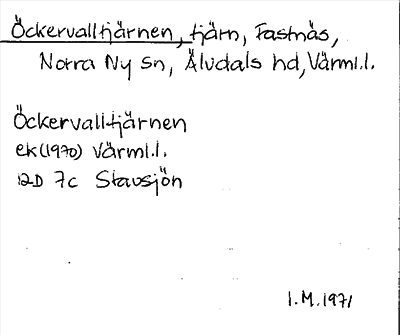 Öckervalltjärnen, tjärn, Fastnäs,
Norra Ny sn, Älvdals hd, Värml.l.
Öckervalltjärnen
ek(1970) Värml.l.
12D 7c Stavsjön
I.M.1971